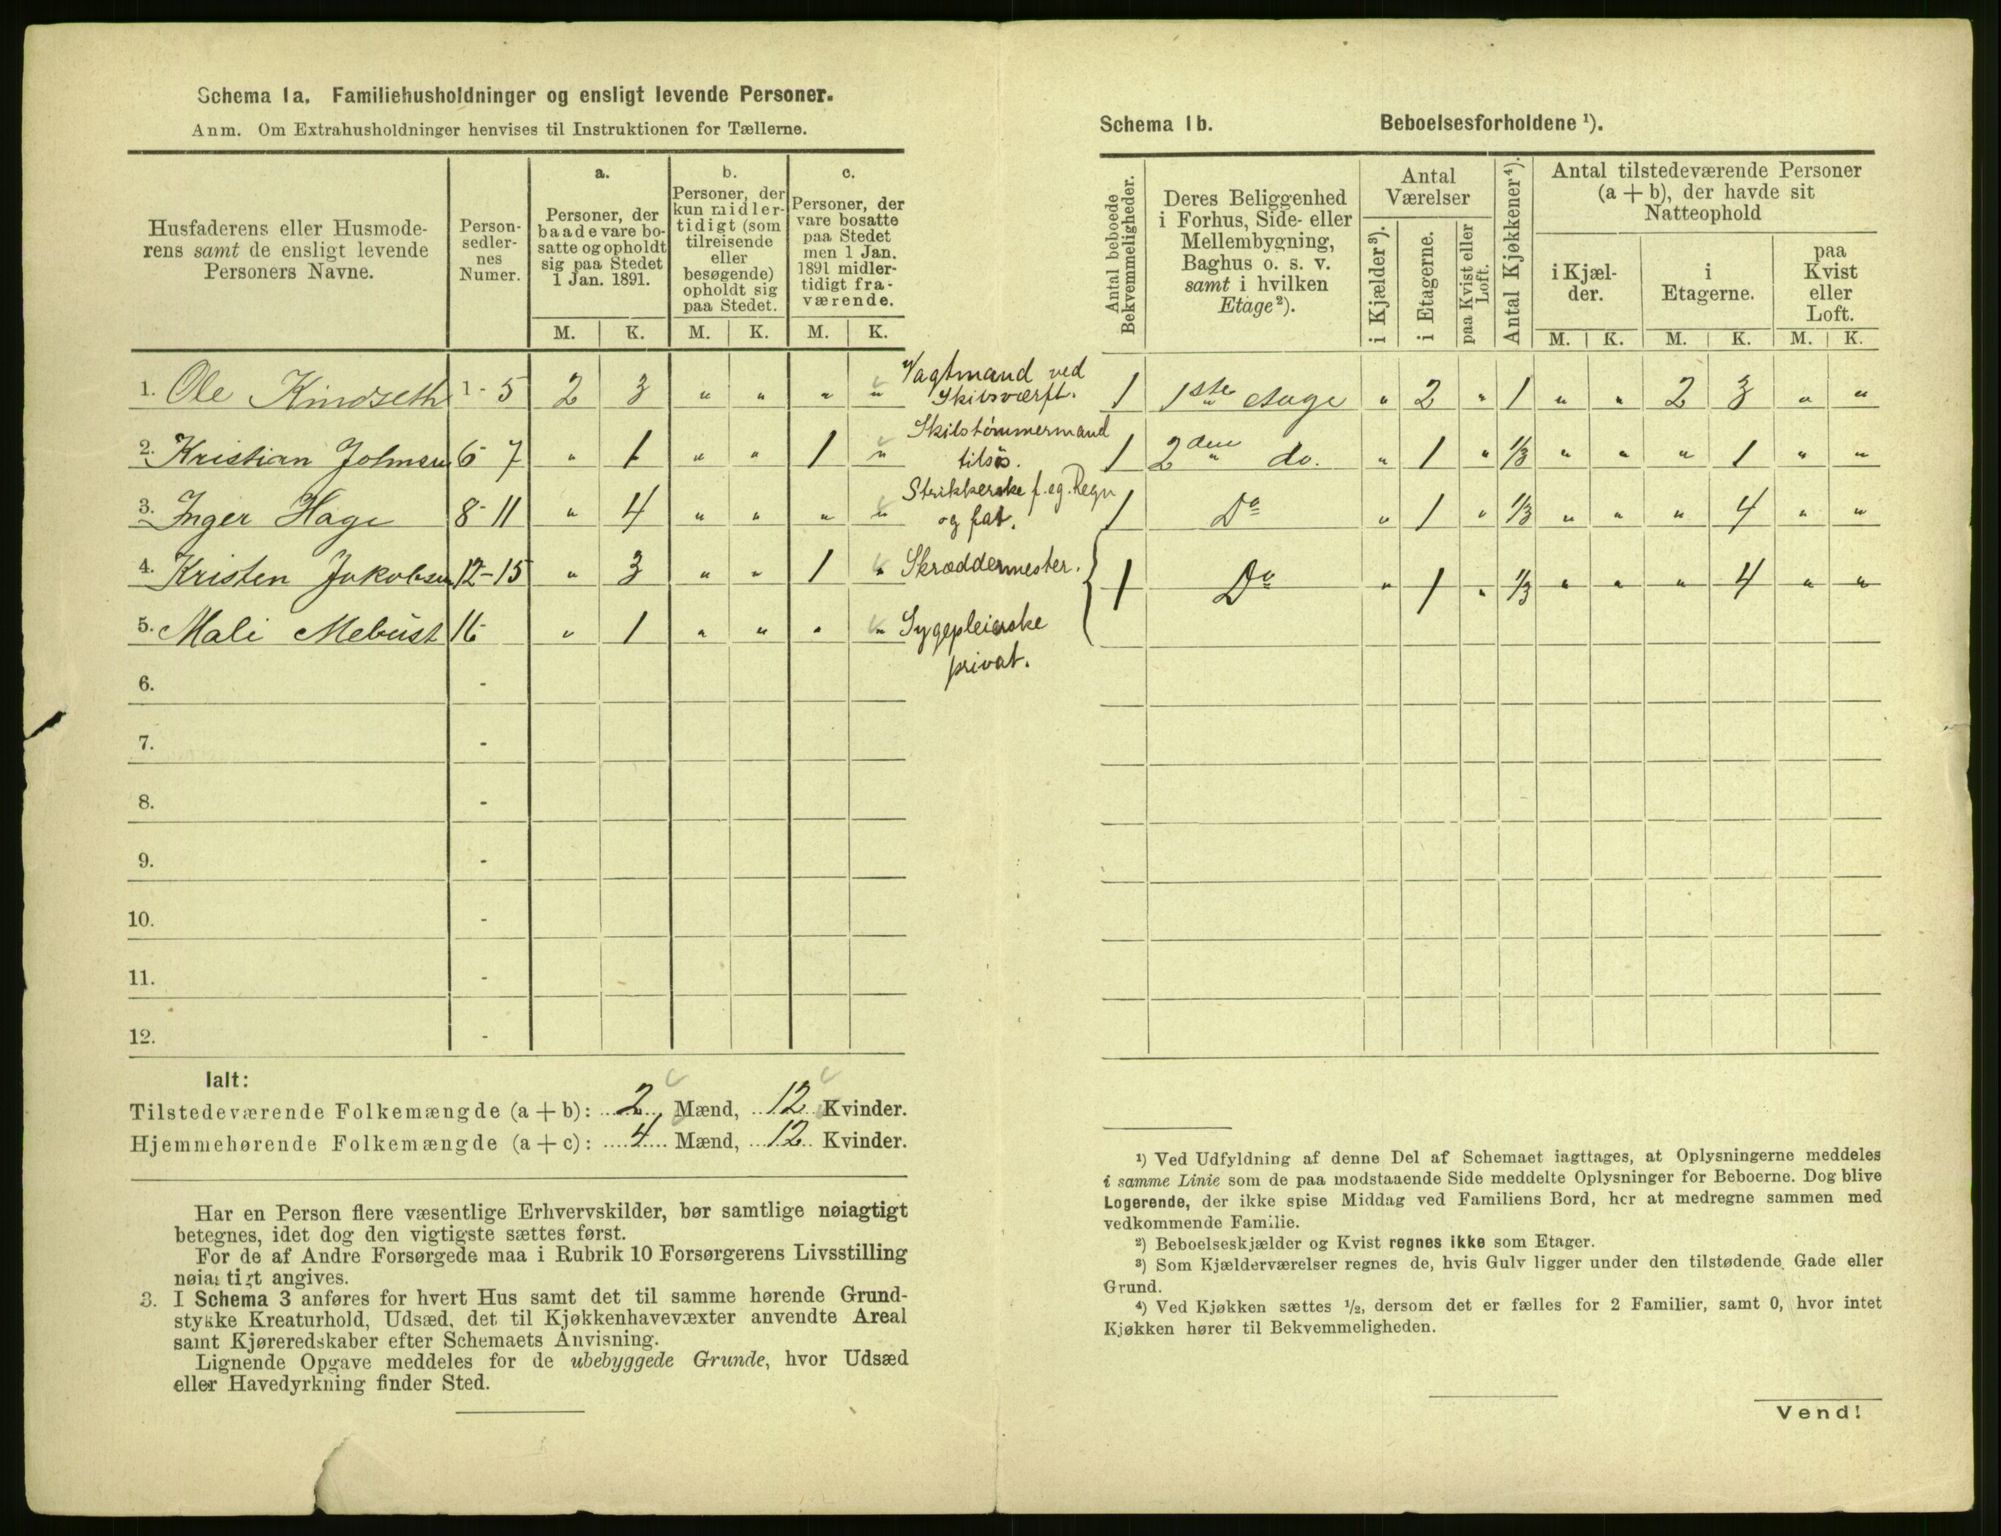 Schema 1a. Familiehusholdninger og ensligt levende Personer.
Anm. Om Extrahusholdninger henvises til Instruktionen for Tællerne.
Husfaderens eller Husmode-
rens samt de ensligt levende
Personers Navne.
Person-
sedler-
nes
Numer.
a.
Personer, der
baade vare bo-
satte og opholdt
sig paa Stedet
1 Jan. 1891.
b.
Personer, der
kun midler-
tidigt (som
tilreisende
eller
besøgende)
opholdt sig
paa Stedet.
c.
Personer, der
vare bosatte
paa Stedet
men 1 Jan.
1891 midler-
tidigt fra-
værende.
M. K. M. K. M. K.
1. Ole Kindseth 1 - 5 2 3 " " " " Vagtmand ved
Skibsværft.
2. Kristian Johnsen 6 - 7 " 1 " " 1 " Skibstømmermand
tilsjøs.
3. Inger Hage 8 - 11 " 4 " " " " Strikkerske f. eg. Regn
og fat.
4. Kristen Jakobsen 12 - 15 " 3 " " 1 " Skræddermester.
5. Mali Mebust 16 - " 1 " " " " Sygepleierske
privat.
6. -
7. -
8. -
9. -
10. -
11. -
12. -
Ialt:
Tilstedeværende Folkemængde (a + b): 2 Mænd, 12 Kvinder.
Hjemmehørende Folkemængde (a + c): 4 Mænd, 12 Kvinder.
Har en Person flere væsentlige Erhvervskilder, bør samtlige nøiagtigt
betegnes, idet dog den vigtigste sættes først.
For de af Andre Forsørgede maa i Rubrik 10 Forsørgerens Livsstilling
nøiagtigt angives.
3. I Schema 3 anføres for hvert Hus samt det til samme hørende Grund-
stykke Kreaturhold, Udsæd, det til Kjøkkenhavevæxter anvendte Areal
samt Kjøreredskaber efter Schemaets Anvisning.
Lignende Opgave meddeles for de ubebyggede Grunde, hvor Udsæd
eller Havedyrkning finder Sted.
Schema 1b. Beboelsesforholdene ¹).
Antal beboede
Bekvemmeligheder.
Deres Beliggenhed
i Forhus, Side- eller
Mellembygning,
Baghus o. s. v.
samt i hvilken
Etage²).
Antal
Værelser
i Kjælder³).
i Etagerne.
paa Kvist eller
Loft.
Antal Kjøkkener⁴).
Antal tilstedeværende Personer
(a + b), der havde sit
Natteophold
i Kjæl-
der.
i
Etagerne.
paa
Kvist
eller
Loft.
M. K. M. K. M. K.
1 1ste Etage " 2 " 1 " " 2 3 " "
1 2den do. " 1 " 1/3 " " " 1 " "
1 Do " 1 " 1/3 " " " 4 " "
1 Do " 1 " 1/3 " " " 4 " "
¹) Ved Udfyldning af denne Del af Schemaet iagttages, at Oplysningerne meddeles
i samme Linie som de paa modstaaende Side meddelte Oplysninger for Beboerne. Dog blive
Logerende, der ikke spise Middag ved Familiens Bord, her at medregne sammen med
vedkommende Familie.
²) Beboelseskjælder og Kvist regnes ikke som Etager.
³) Som Kjælderværelser regnes de, hvis Gulv ligger under den tilstødende Gade eller
Grund.
⁴) Ved Kjøkken sættes ½, dersom det er fælles for 2 Familier, samt 0, hvor intet
Kjøkken hører til Bekvemmeligheden.
Vend!